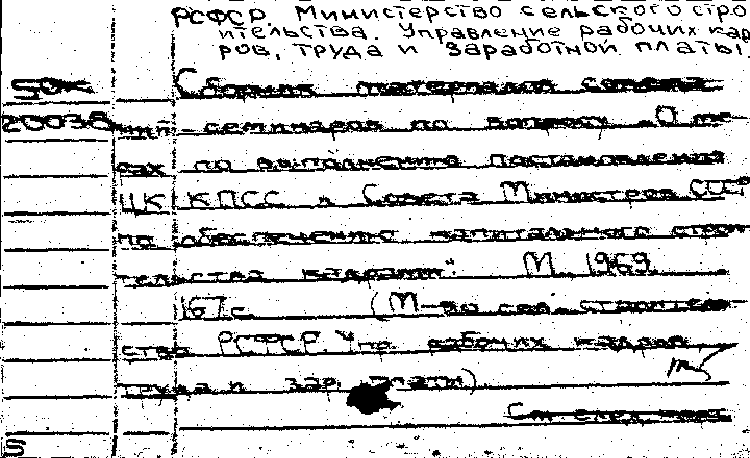 РСФСР. Министерство сельского стро
ительства. Управление рабочих кад
ров, труда и заработной платы.
Сборник материалов
20038 семинаров по вопросу „О ме-
рах по выполнению постановления
ЦК КПСС и Совета Министров СССР
по обеспечению капитального строи-
тельства кадрами“. М. 1969.
167 с. (М-во сел. строитель
ства РСФСР. Упр. рабочих кадров
труда и зар. платы)